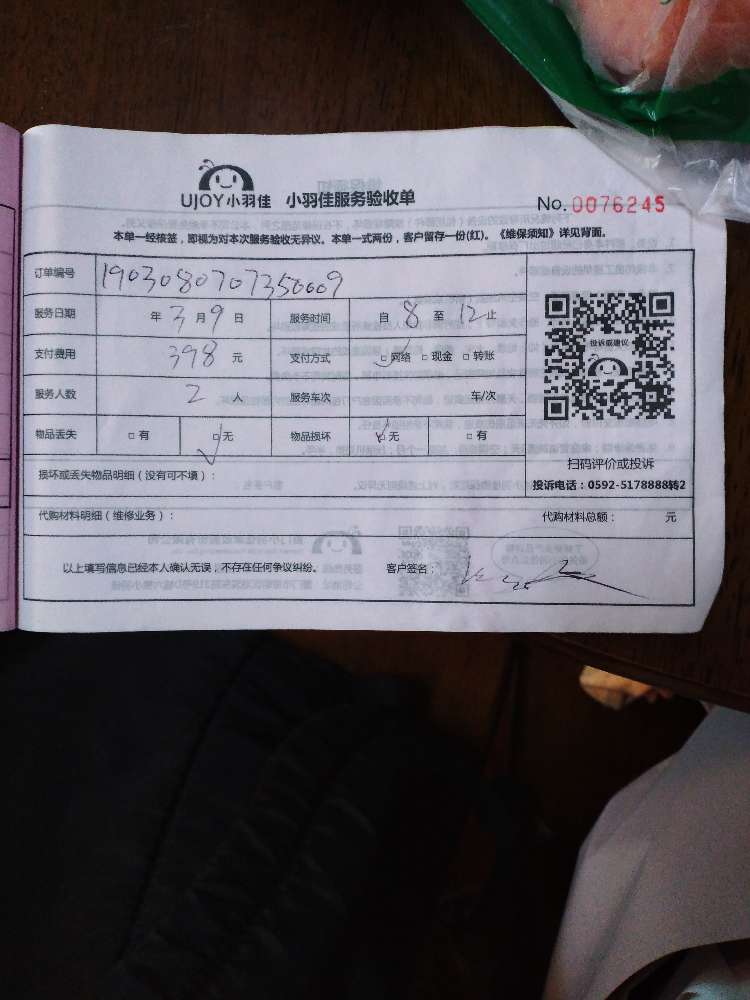 UJOY小羽佳 小羽佳服务验收单 No. 0076245
本单一经核签，即视为对本次服务验收无异议。本单一式两份，客户留存一份(红)。《维保须知》详见背面。
订单编号 19030807073500009
服务日期 年 3 月 9 日 服务时间 自 8 至 12 止
支付费用 398 元 支付方式 □网络 □现金 □转账
投诉或建议
服务人数 2 人 服务车次 车/次
物品丢失 □有 □无 物品损坏 □无 □有
扫码评价或投诉
损坏或丢失物品明细（没有可不填）：
投诉电话：0592-5178888转2
代购材料明细（维修业务）： 代购材料总额： 元
以上填写信息已经本人确认无误，不存在任何争议纠纷。 客户签名：